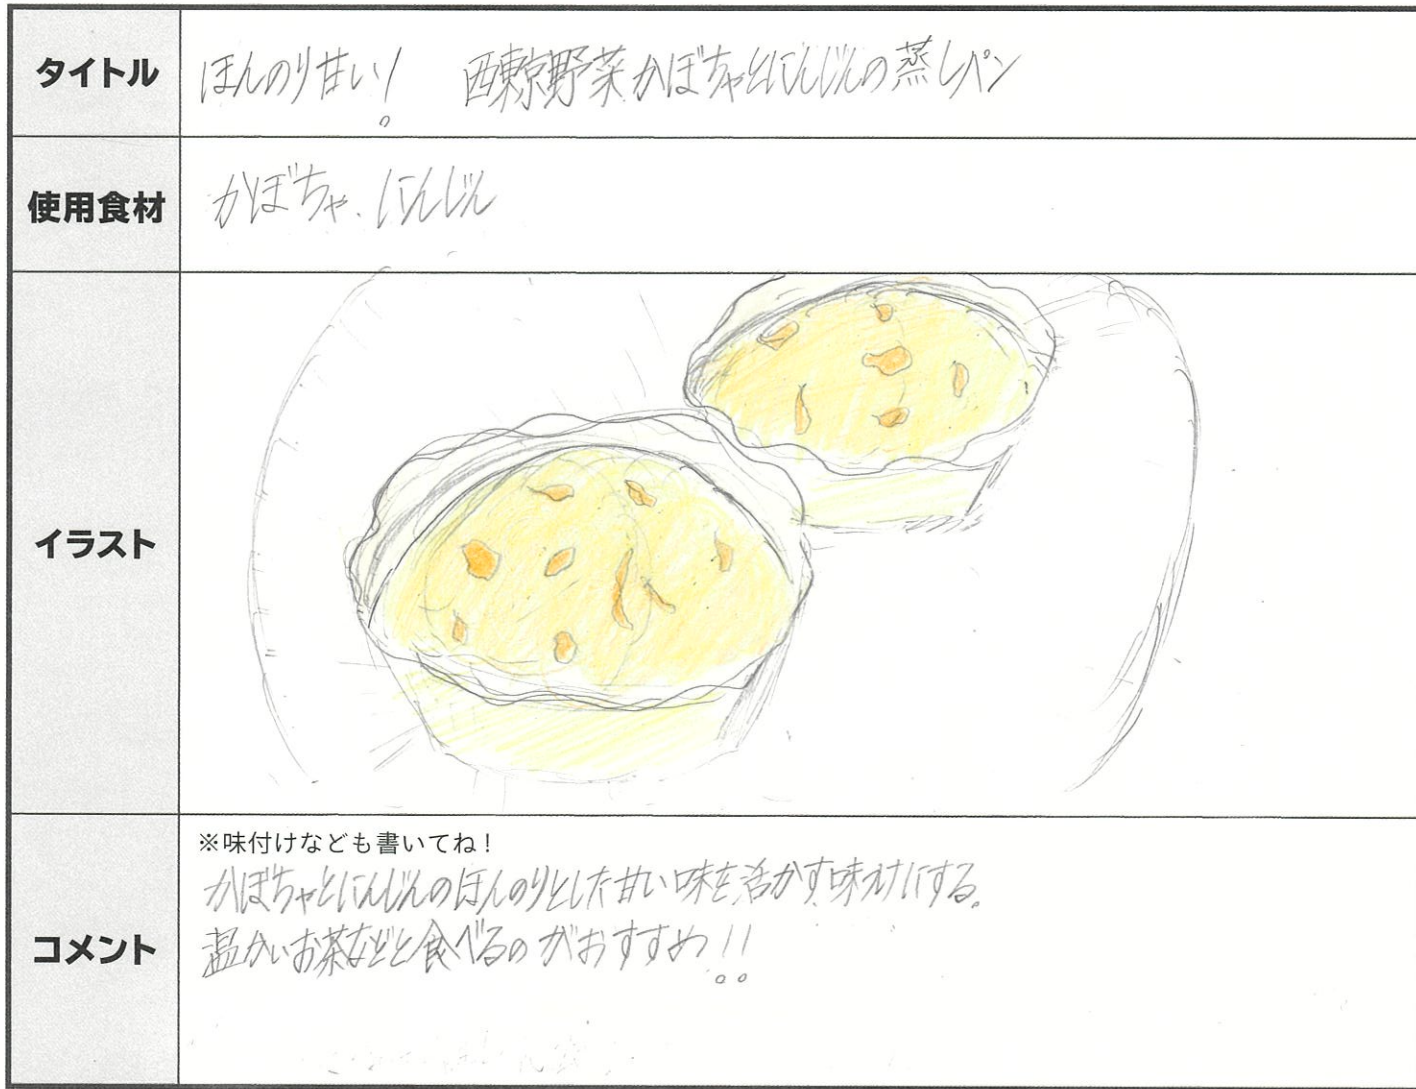 タイトル
ほんのり甘い! 西東京野菜かぼちゃとにんじんの蒸しパン
使用食材
かぼちゃ、にんじん
イラスト
コメント
※味付けなども書いてね!
かぼちゃとにんじんのほんのりとした甘い味を活かす味付けにする。
温かいお茶などと食べるのがおすすめ!!